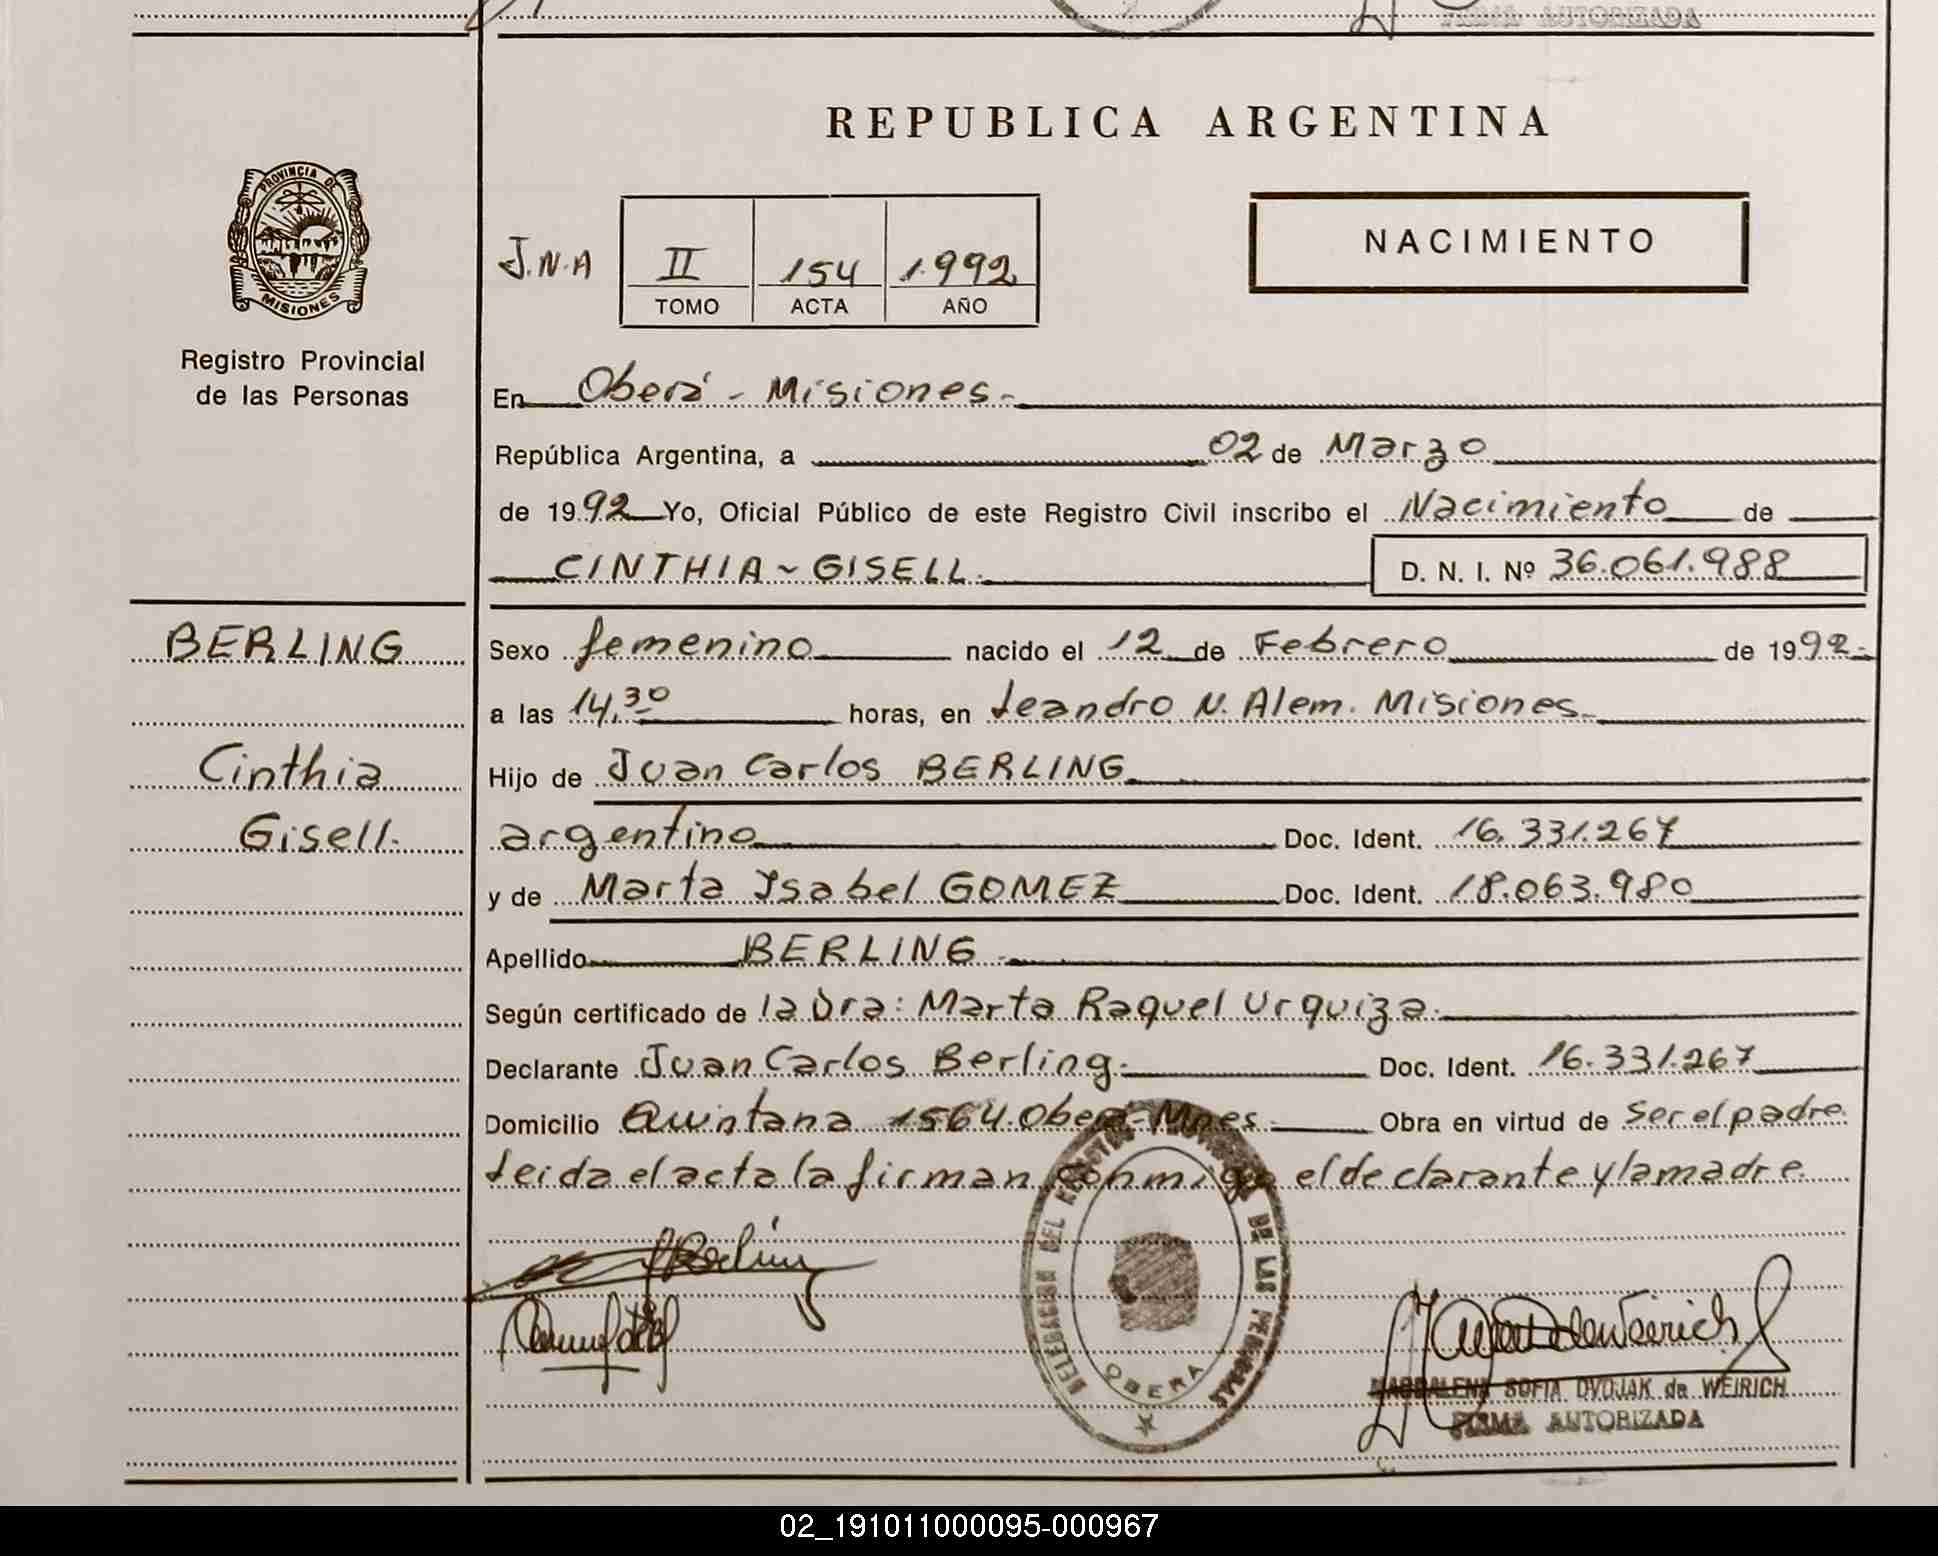 REPUBLICA ARGENTINA
PROVINCIA DE
MISIONES
Registro Provincial
de las Personas
J.N.A
II 154 1992
TOMO ACTA AÑO
NACIMIENTO
En Oberá - Misiones.-
República Argentina, a 02 de Marzo
de 1992 Yo, Oficial Público de este Registro Civil inscribo el Nacimiento de
CINTHIA ~ GISELL.
D. N. I. Nº 36.061.988
BERLING
Cinthia
Gisell.
Sexo femenino nacido el 12 de Febrero de 1992.-
a las 14,30 horas, en Leandro N. Alem. Misiones.-
Hijo de Juan Carlos BERLING
argentino Doc. Ident. 16.331.267
y de Marta Isabel GOMEZ Doc. Ident. 18.063.980
Apellido BERLING.-
Según certificado de la Dra: Marta Raquel Urquiza.-
Declarante Juan Carlos Berling.- Doc. Ident. 16.331.267
Domicilio Quintana 1564. Oberá-Mnes.- Obra en virtud de Ser el padre.
Leida el acta la firman conmigo el declarante y la madre.
DELEGACION DEL REGISTRO PROVINCIAL DE LAS PERSONAS
OBERA
MAGDALENA SOFIA DVOJAK de WEIRICH
FIRMA AUTORIZADA
02_191011000095-000967